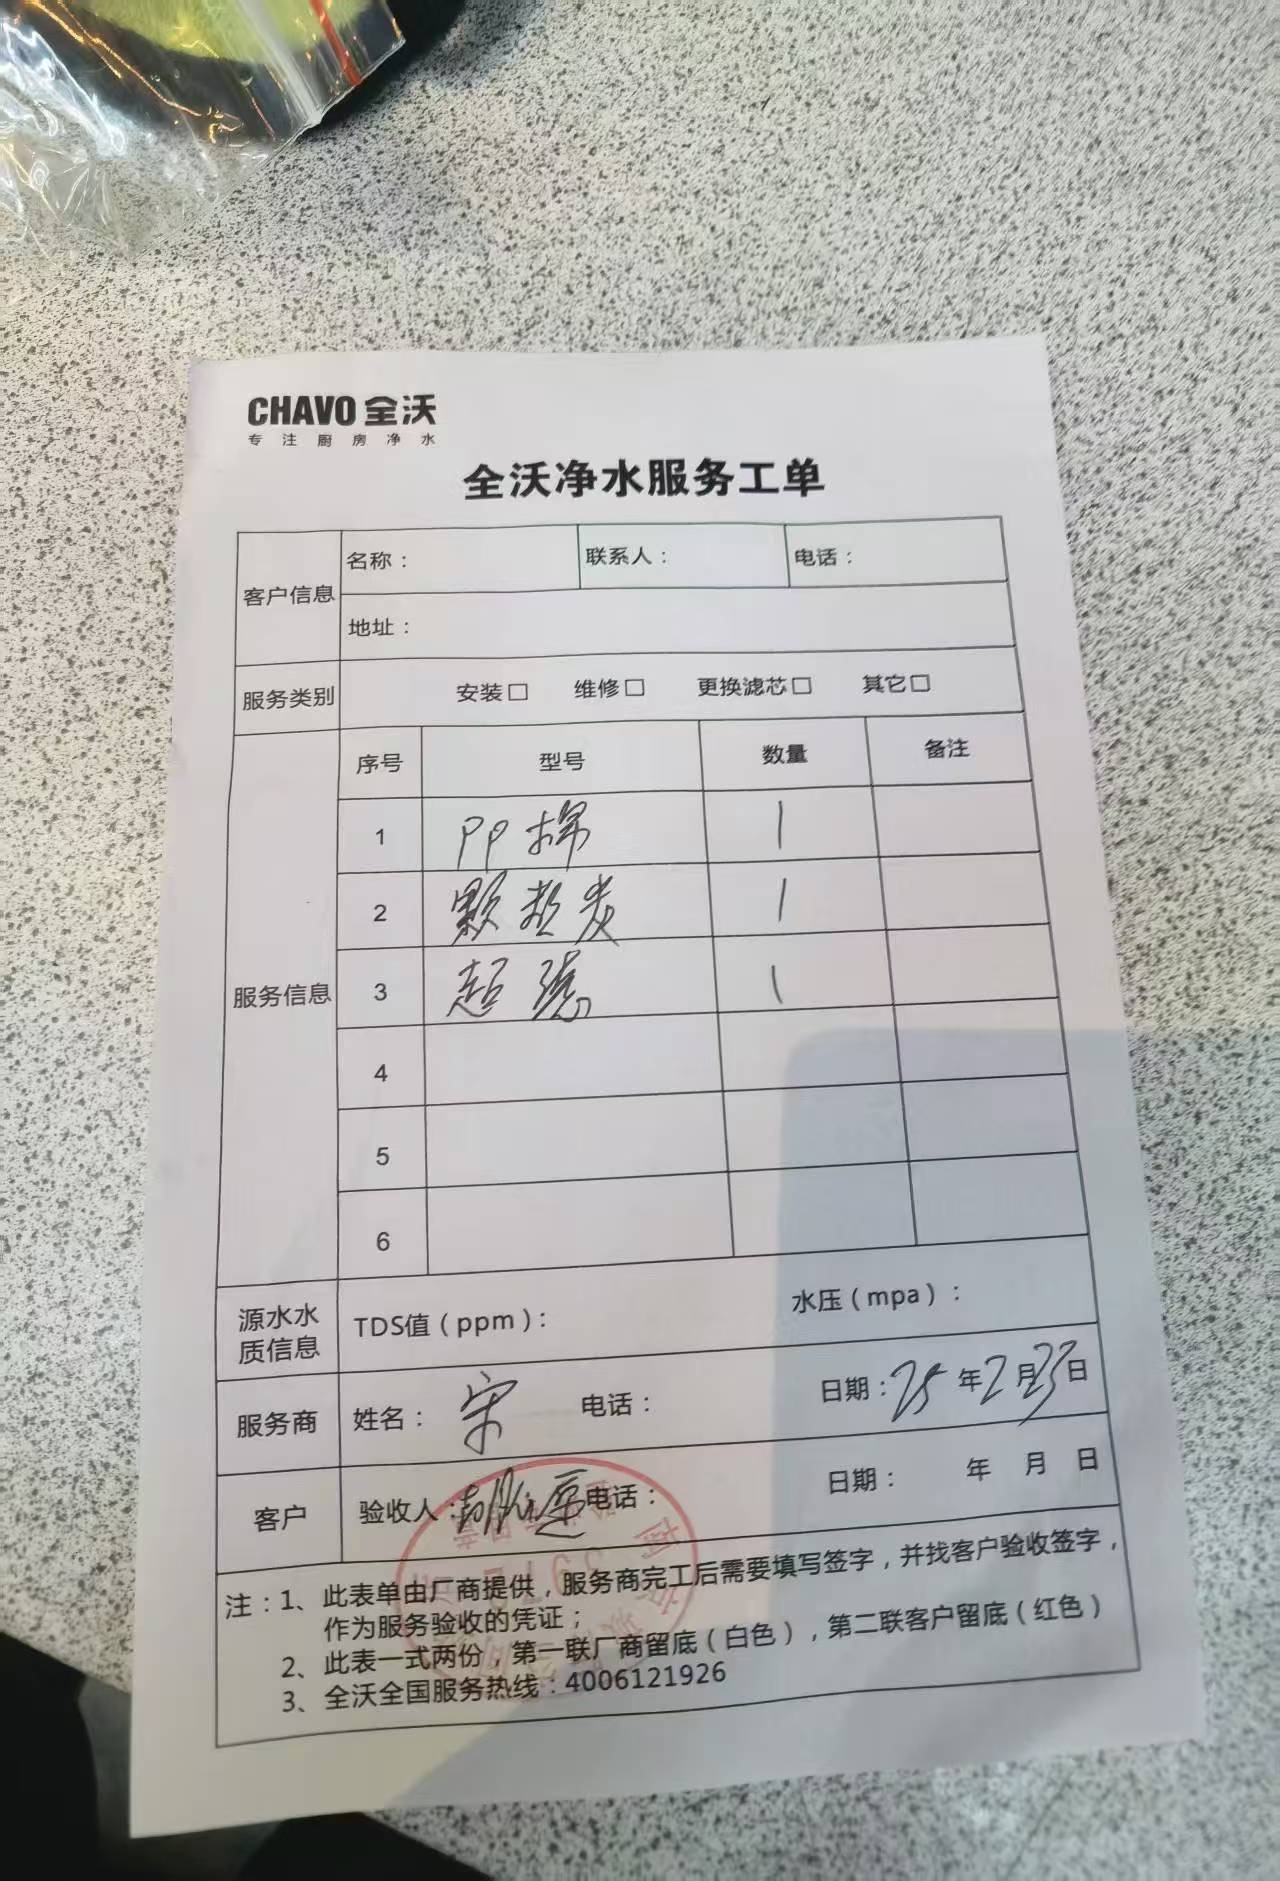 CHAVO 全沃
专注厨房净水
全沃净水服务工单
客户信息
名称： 联系人： 电话：
地址：
服务类别 安装□ 维修□ 更换滤芯□ 其它□
服务信息
序号 型号 数量 备注
1 PP棉 1
2 颗粒炭 1
3 超滤 1
4
5
6
源水水质信息 TDS值（ppm）： 水压（mpa）：
服务商 姓名：宋 电话： 日期：25年2月23日
客户 验收人： 电话： 日期： 年 月 日
注：1、此表单由厂商提供，服务商完工后需要填写签字，并找客户验收签字，
作为服务验收的凭证；
2、此表一式两份，第一联厂商留底（白色），第二联客户留底（红色）
3、全沃全国服务热线：4006121926